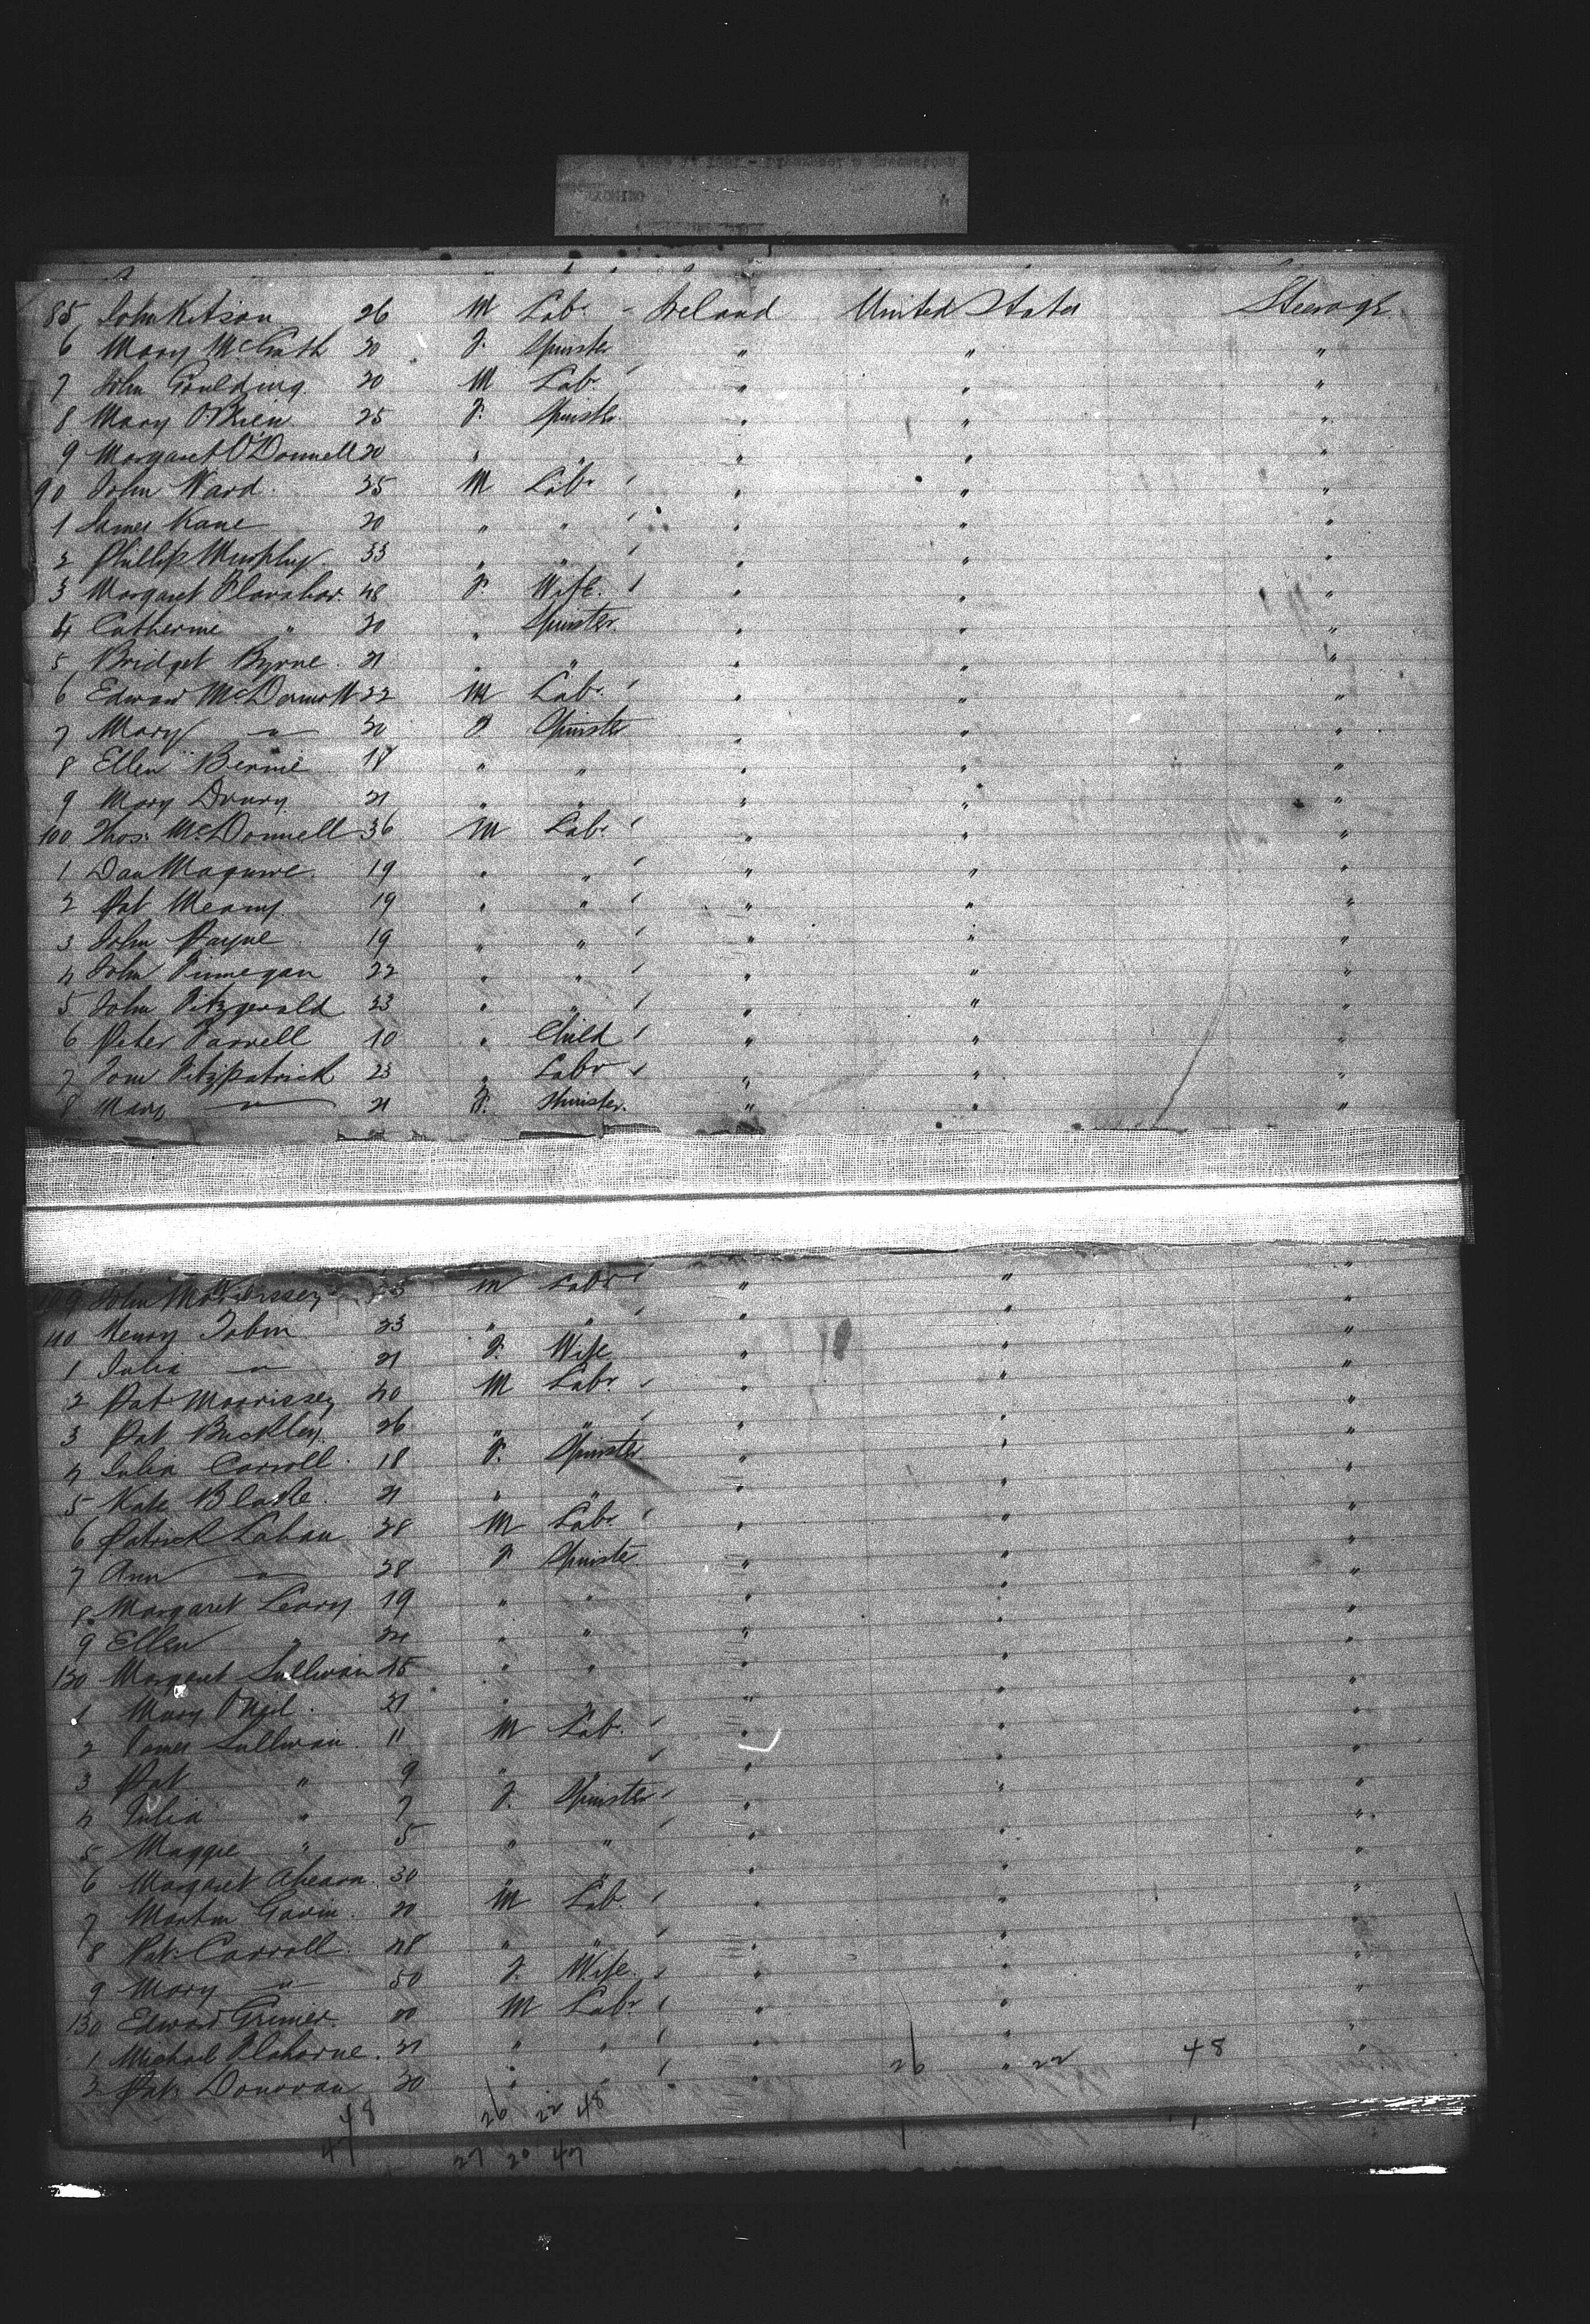 85 John Kitson 26 M Lab. - Ireland United States Steerage
6 Mary McGrath 20 F. Spinster " " "
7 John Goulding 20 M Lab. " " "
8 Mary O'Brien 25 F. Spinstr. " " "
9 Margaret O'Donnell 20 " " " " "
90 John Ward 25 M Labr " " "
1 James Kane 20 " " " " "
2 Phillip Murphy 33 " " " " "
3 Margaret 48 F. Wife. " " "
4 Catherine " 20 " Spinster " " "
5 Bridget Byrne 21 " " " " "
6 Edward McDermott 22 M Lab. " " "
7 Mary " 20 F Spinster " " "
8 Ellen Bernie 18 " " " " "
9 Mary Drury 21 " " " " "
100 Thos. McDonnell 36 M Lab. " " "
1 Dan Maguire 19 " " " " "
2 Pat 19 " " " " "
3 John Payne 19 " " " " "
4 John Finnegan 22 " " " " "
5 John Fitzgerald 23 " " " " "
6 Peter Farrell 10 " Child " " "
7 Tom Fitzpatrick 23 " Labr " " "
8 Mary " 21 F. Spinster. " " "
109 John Morrissey M Labr " " "
110 Henry Tobin 23 " " " " "
1 Julia " 21 F. Wife " " "
2 Pat Morrissey 20 M Labr " " "
3 Pat Buckley 26 " " " " "
4 Julia Carroll 18 F. Spinster " " "
5 Kate Blake 21 " " " " "
6 Patrick Lahan 28 M Labr " " "
7 Ann " 28 F Spinster " " "
8 Margaret Leary 19 " " " " "
9 Ellen " " " " " "
120 Margaret Sullivan 45 " " " " "
1 Mary O'Neil 21 " " " " "
2 James Sullivan 11 M Lab. " " "
3 Pat " 9 " " " " "
4 Julia " 7 F. Spinster " " "
5 Maggie " 5 " " " " "
6 Margaret Ahearn 30 " " " " "
7 Martin Gavin 20 M Lab. " " "
8 Pat. Carroll 48 " " " " "
9 Mary " 50 F. Wife " " "
130 Edward Grimes 20 M Labr " " "
1 Michael 21 " " " " "
2 Pat. Donovan 20 " " " 26 " 22 48 "
48 26 22 48
47 27 20 47